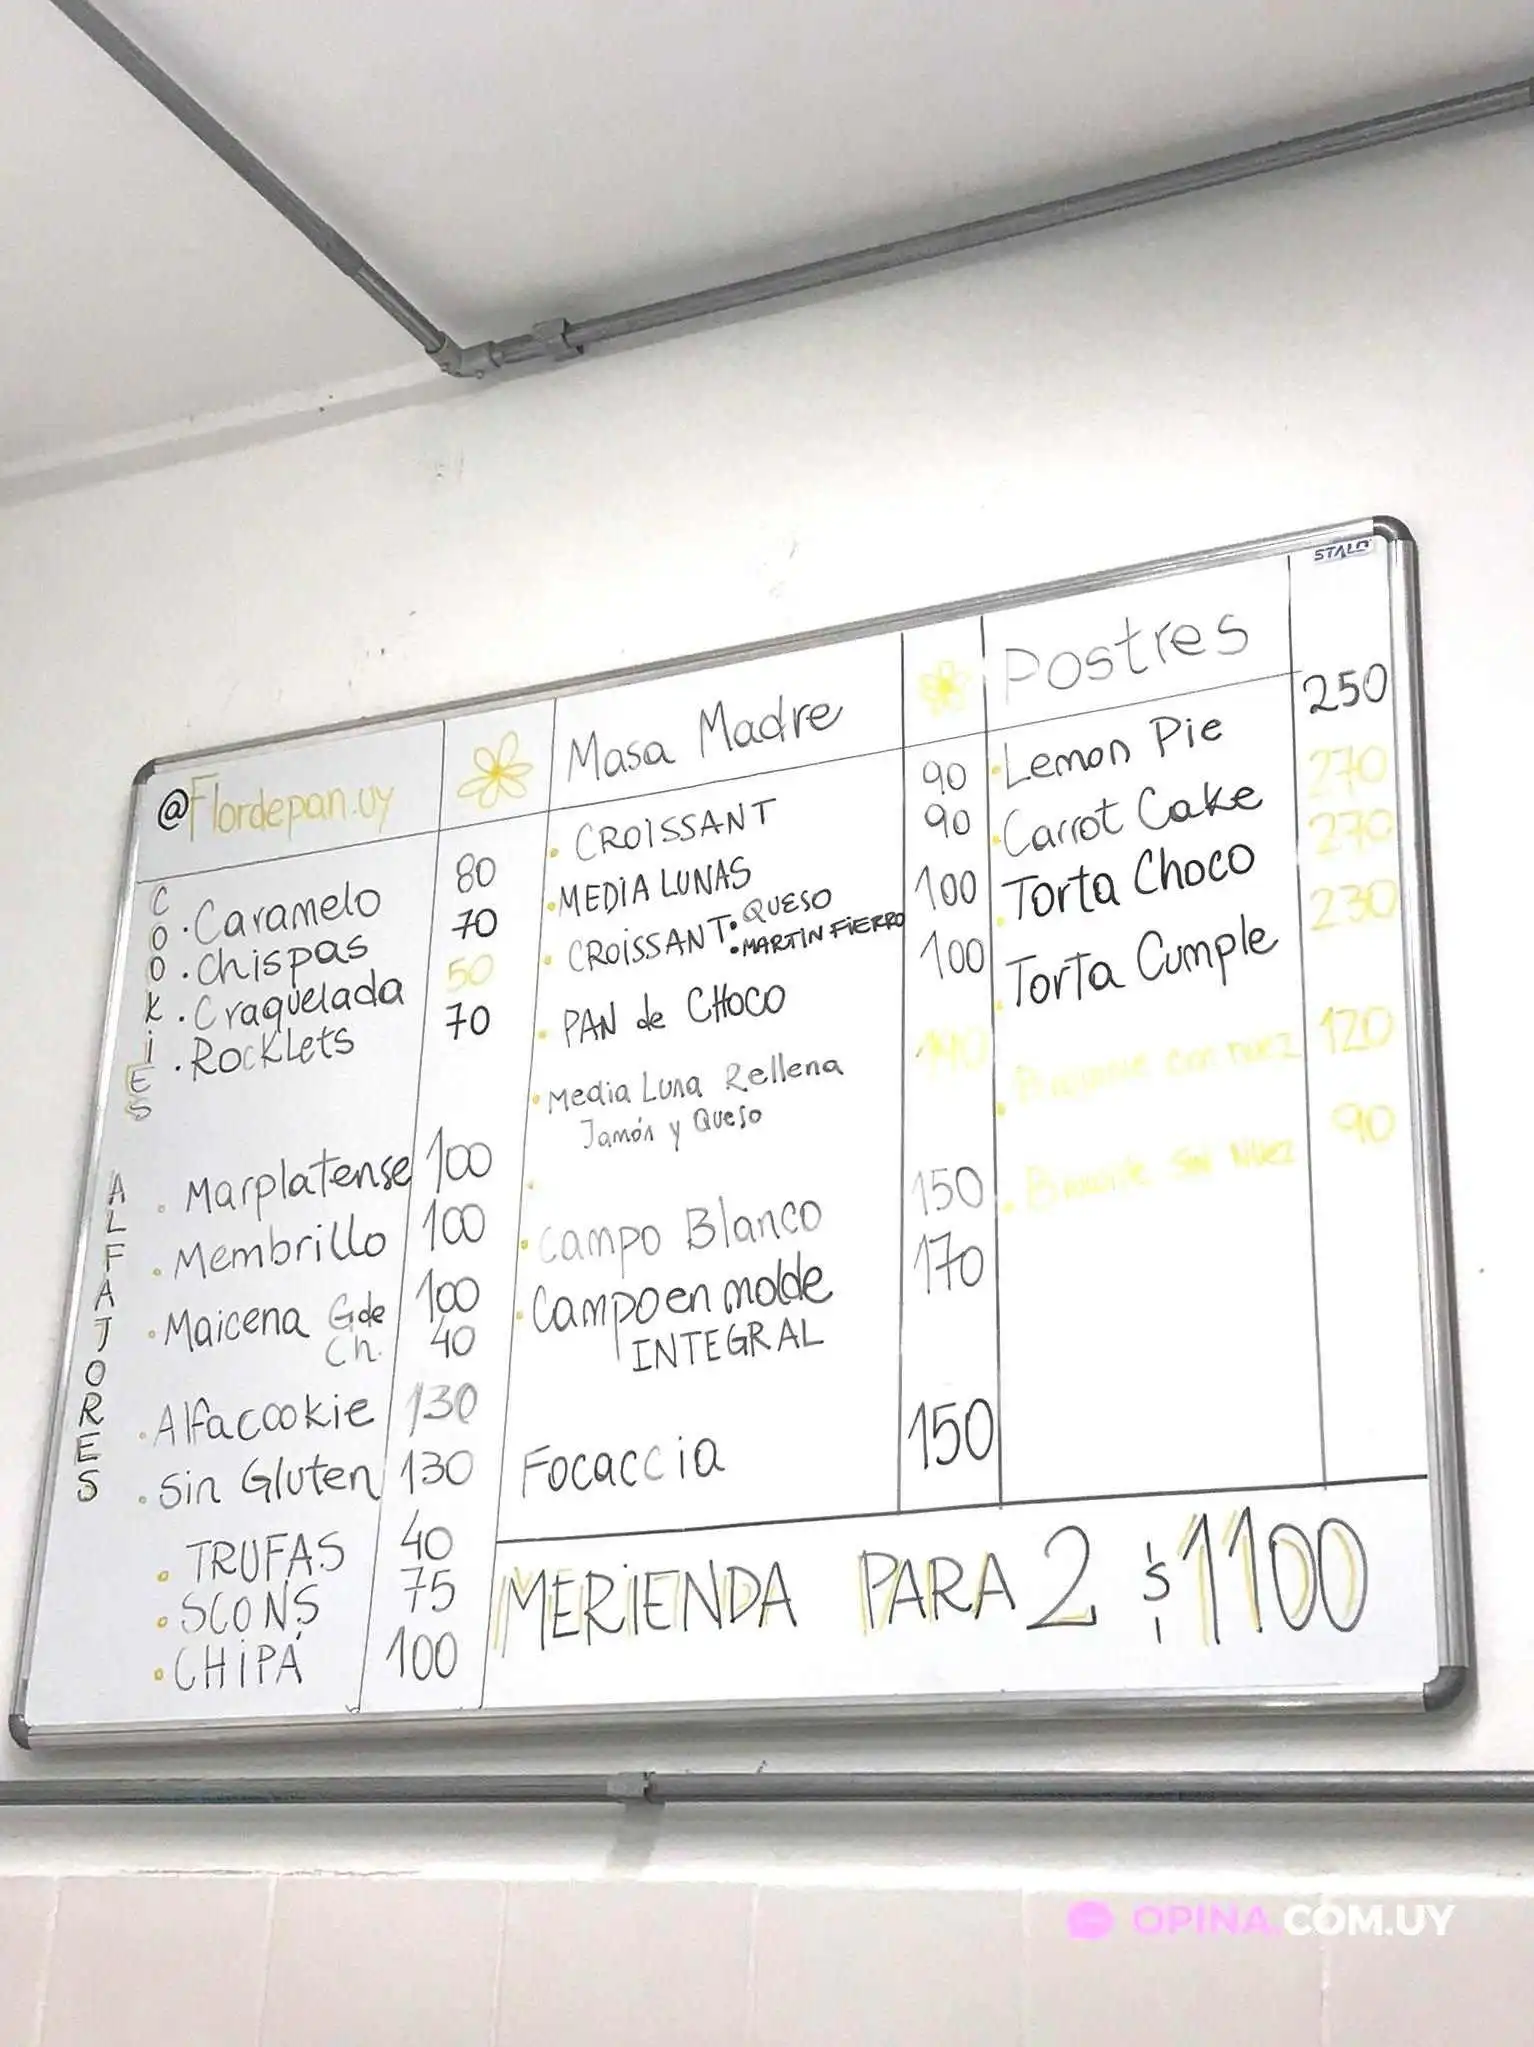 STALO
@Flordepan.uy
COOKIES
. Caramelo 80
. Chispas 70
. Craquelada 50
. Rocklets 70
ALFAJORES
. Marplatense 100
. Membrillo 100
. Maicena Gde 100
Ch. 40
. Alfacookie 130
. Sin Gluten 130
. TRUFAS 40
. SCONS 75
. CHIPÁ 100
Masa Madre
. CROISSANT 90
. MEDIA LUNAS 90
. CROISSANT • QUESO 100
• MARTIN FIERRO
. PAN de CHOCO 100
. Media Luna Rellena 140
Jamón y Queso
. Campo Blanco 150
. Campo en molde 170
INTEGRAL
Focaccia 150
Postres
. Lemon Pie 250
. Carrot Cake 270
. Torta Choco 270
. Torta Cumple 230
. con nuez 120
. sin Nuez 90
MERIENDA PARA 2 $1100
OPINA.COM.UY